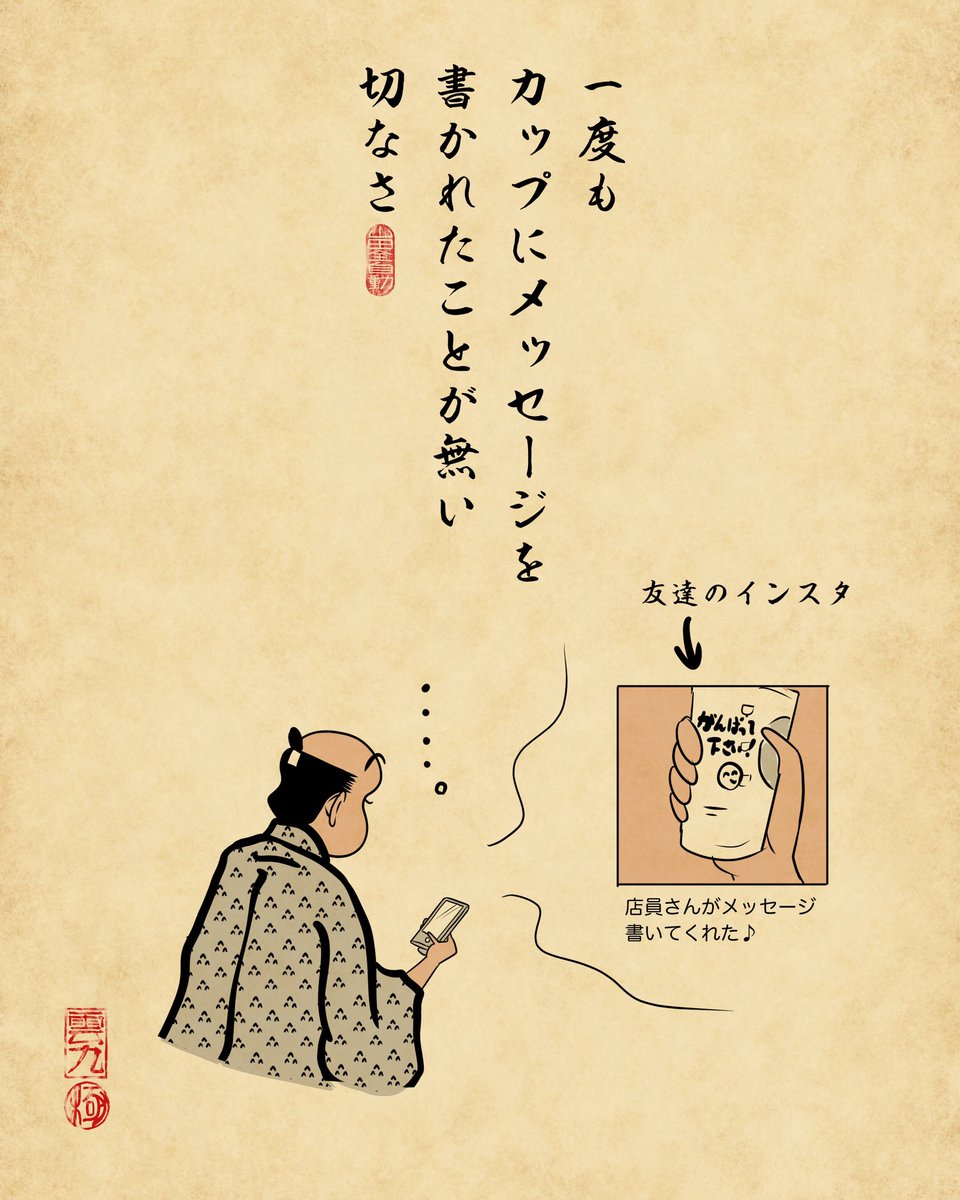 一度も
カップにメッセージを
書かれたことが無い
切なさ
友達のインスタ
がんばって
下さい!
店員さんがメッセージ
書いてくれた♪